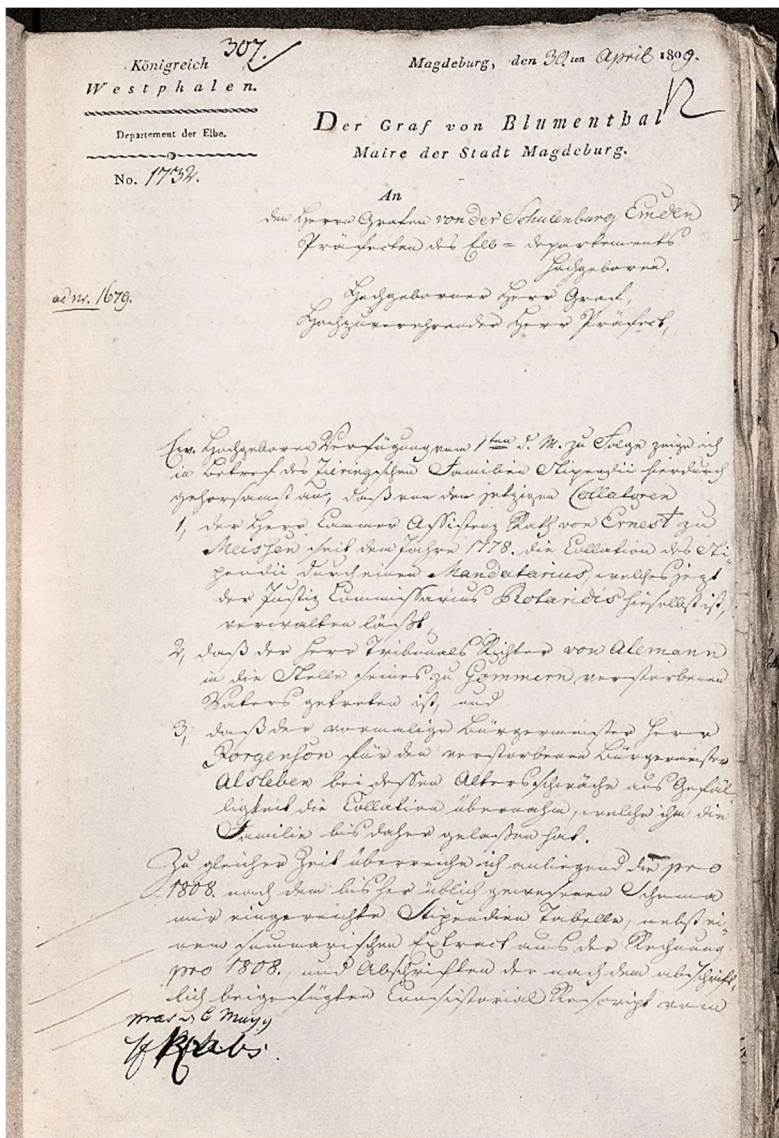 307.
Königreich
Westphalen.
Departement der Elbe.
No. 1732.
Magdeburg, den 30.ten April 1809.
Der Graf von Blumenthal
Maire der Stadt Magdeburg.
An
den Herrn Grafen von der Schulenburg Emden
Präfecten des Elb-departements
Hochgeboren.
ad nr. 1679.
Hochgeborner Herr Graf,
Hochzuverehrender Herr Präfect,
Ew. Hochgeboren Verfügung vom 1ten d. M. zu Folge zeige ich
in Betref des Familien Stipendii hierdurch
gehorsamst an, daß von den jetzigen Collatoren
1, der Herr Cammer Assistenz Rath von Ernest zu
Meissen seit dem Jahre 1778. die Collation des Sti-
pendii durch einen Mandatarius, welches jezt
der Justiz Commissarius hieselbst ist,
verwalten läßt,
2, daß der Herr Tribunals Richter von Alemann
in die Stelle seines zu Gommern verstorbenen
Vaters getreten ist, und
3, daß der vormalige Bürgermeister Herr
für den verstorbenen Bürgermeister
Alsleben bei dessen Altersschwäche aus Gefäl-
ligkeit die Collation übernahm, welche ihm die
Familie bis daher gelaßen hat.
Zu gleicher Zeit überreiche ich anliegend die pro
1808. nach dem bisher üblich gewesenen Schema
mir eingereichte Stipendien Tabelle, nebst ei-
nem summarischen Extract aus der Rechnung
pro 1808., und Abschriften der nach dem abschrift-
lich beigefügten Consistorial Rescript vom
6 May